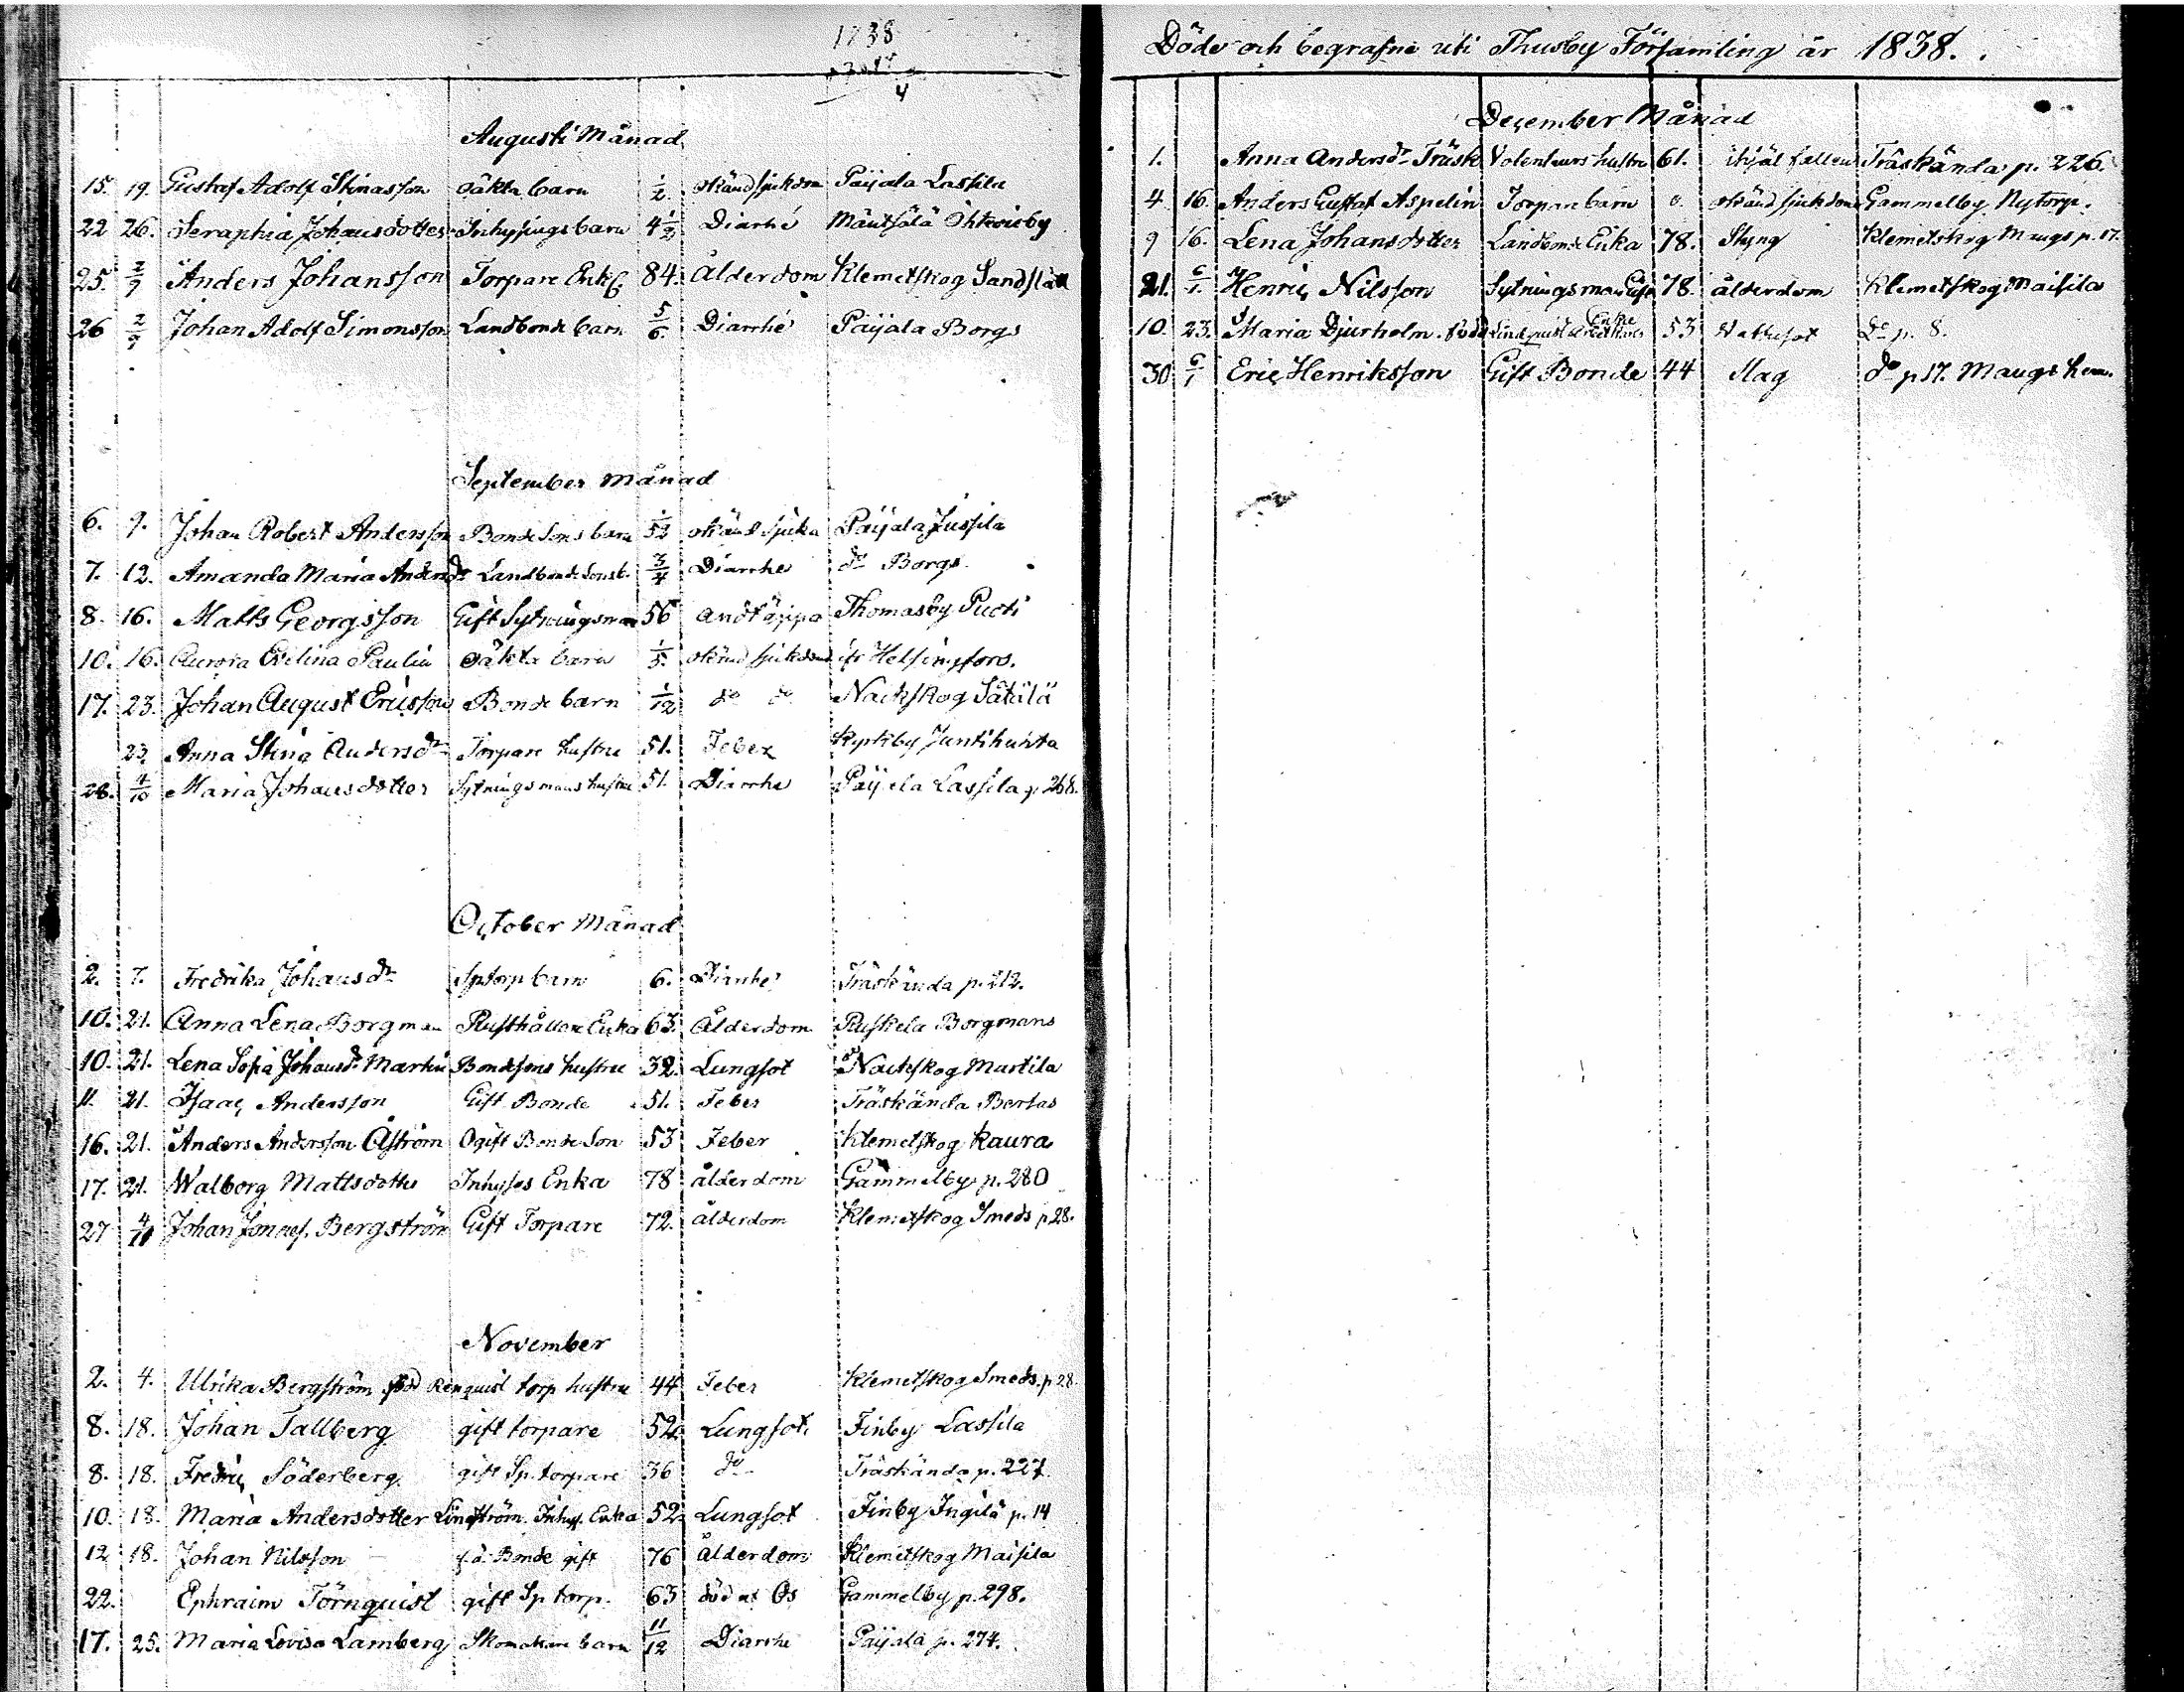 1738
4
Augusti Månad
15. 19. Gustaf Adolf Stinasson oäkta barn 1/2. okänd sjukdom Paijala Lassila
22 26. Seraphia Johansdotter Inhysings barn 4 1/2 Diarrhé Mäntsälä Ohkoisby
25. 2/9 Anders Johansson Torpare Enkl. 84. Ålderdom Klemetskog
26 2/9 Johan Adolf Simonsson Landbonde barn 5/6. Diarrhé Paijala Borgs
September Månad
6. 9. Johan Robert Andersson Bonde Sons barn 1/52 okänd sjuka Paijala Jussila
7. 12. Amanda Maria Andersdr Landbonde Sons b. 3/4 Diarrhe do Borgs
8. 16. Matts Georgsson Gift Sytningsman 56 andtäppa Thomasby Puoti
10. 16. Aurora Evelina Paulin oäkta barn 1/5. okänd sjukdom ifr Helsingfors.
17. 23. Johan August Ericsson Bonde barn 1/12 do do Nackskog Sätilä
23 Anna Stina Andersdr Torpare hustru 51. Feber Kyrkby Juntihuhta
28. 4/10 Maria Johansdotter Sytningsmans hustru 51. Diarrhe Paijala Lassila p. 268.
October Månad
2. 7. Fredrika Johansdr Sp torp barn 6. Diarrhé Träskända p. 212.
10. 21. Anna Lena Borgman Rusthållare Enka 63. Ålderdom Ruskela Borgmans
10. 21. Lena Sofia Johansdr Martin Bondesons hustru 32. Lungsot Nackskog Martila
11. 21. Isaac Andersson Gift Bonde 51. Feber Träskända Bertas
16. 21. Anders Andersson Åström Ogift Bonde Son 53 Feber Klemetskog Kaura
17. 21. Walborg Mattsdotter Inhyses Enka 78 ålderdom Gammelby p. 280
27 4/11 Johan Jonaes. Bergström Gift Torpare 72. ålderdom Klemetskog Smeds p 28.
November
2. 4. Ulrika Bergström född Renquist torp hustru 44 Feber Klemetskog Smeds. p 28.
8. 18. Johan Tallberg gift torpare 52. Lungsot. Finby Lassila
8. 18. Fredric Söderberg. gift Sp. torpare 36 do Träskända p. 227.
10. 18. Maria Andersdotter Lindström Inhys. Enka 52. Lungsot Finby Ingilä p. 14
12 18. Johan Nilsson f.d. Bonde gift 76 ålderdom Klemetskog Maisila
22. Ephraim Törnquist gift Sp torp. 63 död at Os Gammelby p. 298.
17. 25. Maria Lovisa Lamberg Skomakare barn 11/12 Diarrhe Paijala p. 274.
Döde och begrafne uti Thusby Församling år 1838.
December Månad
1. Anna Andersdr Träsk Volenteurs hustru 61. ihjäl fallen Träskända p. 226.
4 16. Anders Gustaf Aspelin Torpare barn 0. okänd sjukdom Gammelby Nytorp.
9 16. Lena Johansdotter Landbonde Enka 78. Styng Klemetskog Maugs p. 17.
21. 6/1 Henric Nilsson Sytningsman Gift 78. ålderdom Klemetskog Maisila
10 23. Maria Djurholm född Lindquist Enka 53 Vattusot Do p. 8.
30 6/1 Eric Henriksson Gift Bonde 44 Slag do p 17. Maugs hem.